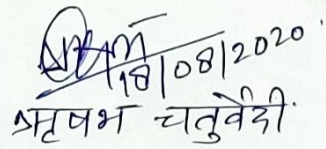 18/08/2020
ऋषभ चतुर्वेदी